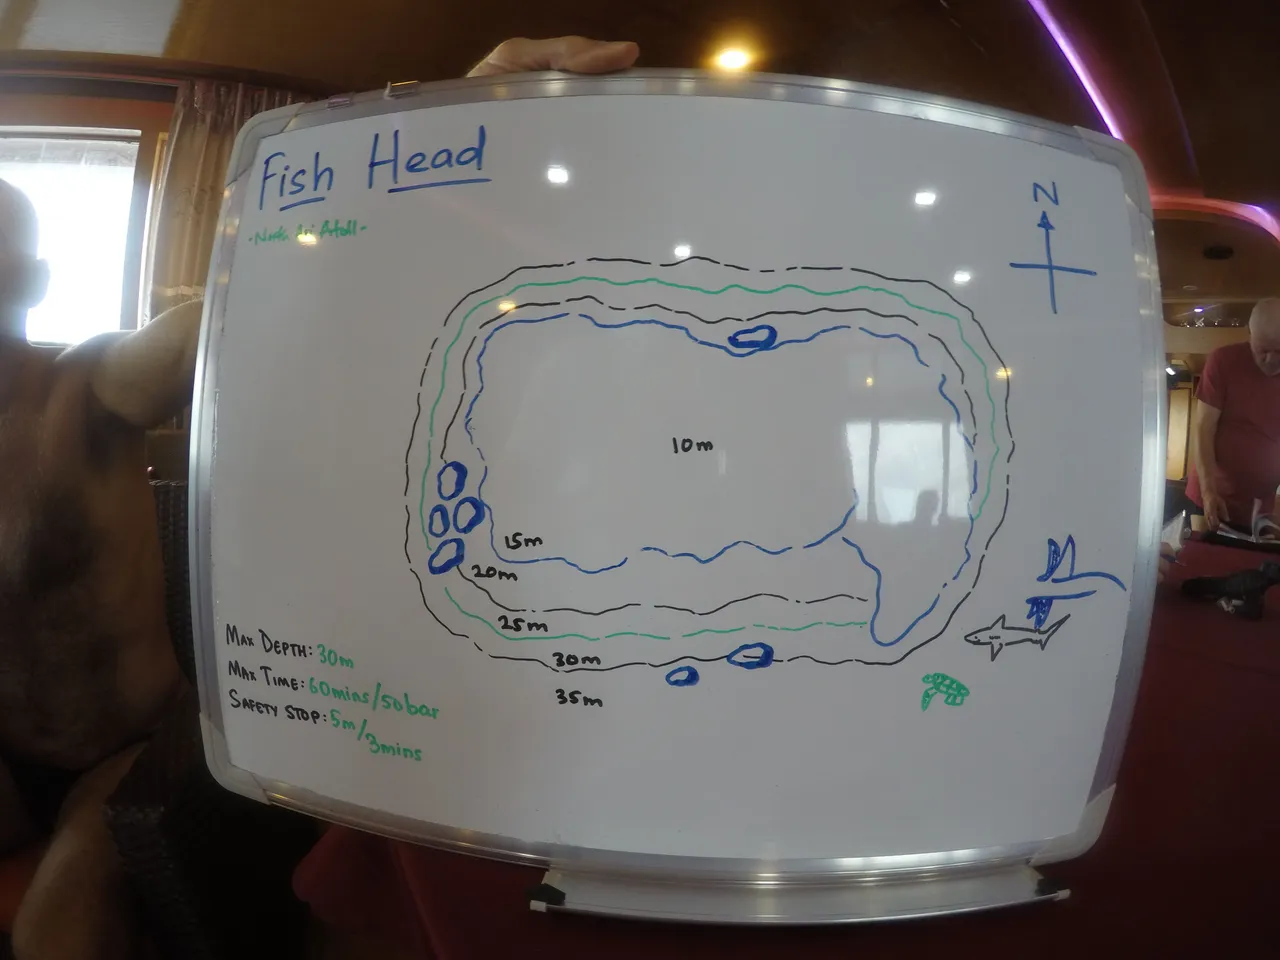 Fish Head
- North Ari Atoll -
N
10m
15m
20m
25m
30m
35m
MAX DEPTH: 30m
MAX TIME: 60mins/50bar
SAFETY STOP: 5m/3mins